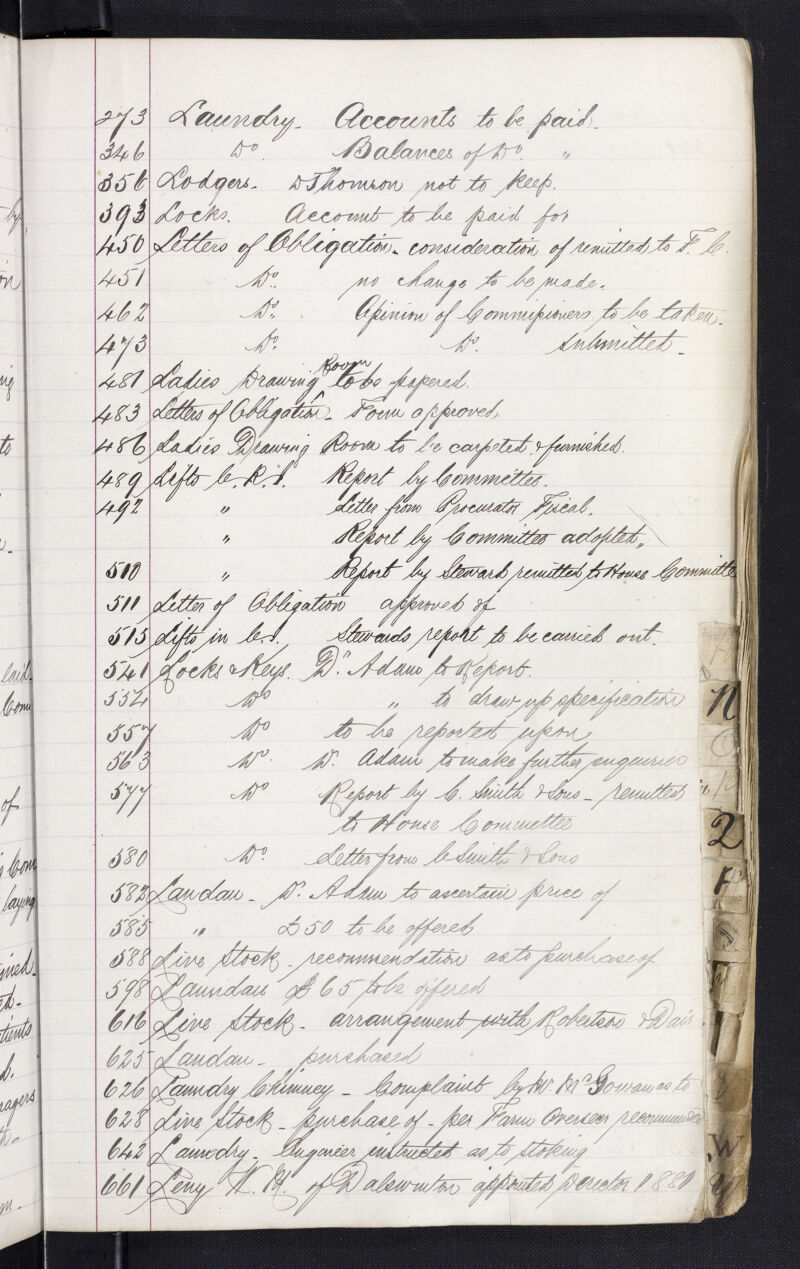 273 Laundry. Accounts to be paid.
346 Do. Balances of Do. "
356 Lodgers. D Thomson not to keep.
393 Locks. Account to be paid for
450 Letters of Obligation. consideration of remitted to F. C.
451 Do. no change to be made.
462 Do. Opinion of Commissioners to be taken.
473 Do. Do. Submitted.
481 Ladies Drawing Room to be papered.
483 Letters of Obligation. Form approved.
486 Ladies Drawing Room to be carpeted & furnished.
489 Lifts C. R. I. Report by Committee.
492 " Letter from Procurator Fiscal.
" Report by Committee adopted.
510 " Report by Steward remitted to House Committee
511 Letter of Obligation approved of
515 Lifts in C. I. Stewards report to be carried out.
541 Locks & Keys. Dr. Adam to Report.
552 Do " to draw up specification
557 Do to be reported upon
563 Do. Dr. Adam to make further enquiries
577 Do Report by C. Smith & Sons - remitted
to House Committee
580 Do. Letter from C Smith & Sons
582 Landau - Dr. Adam to ascertain price of
585 " £50 to be offered
588 Live Stock - recommendation as to purchase of
598 Laundau £65 to be offered
616 Live Stock - arrangement with Robertson &
625 Landau - purchased
626 Laundry Chimney - Complaint by W. McGowan as to
628 Live Stock - purchase of - per Farm Overseer recommended
642 Laundry - Engineer instructed as to stoking
661 Leny W. M. of Dalswinton appointed Director 1881
N
O
P
2
R
S
T
V
W